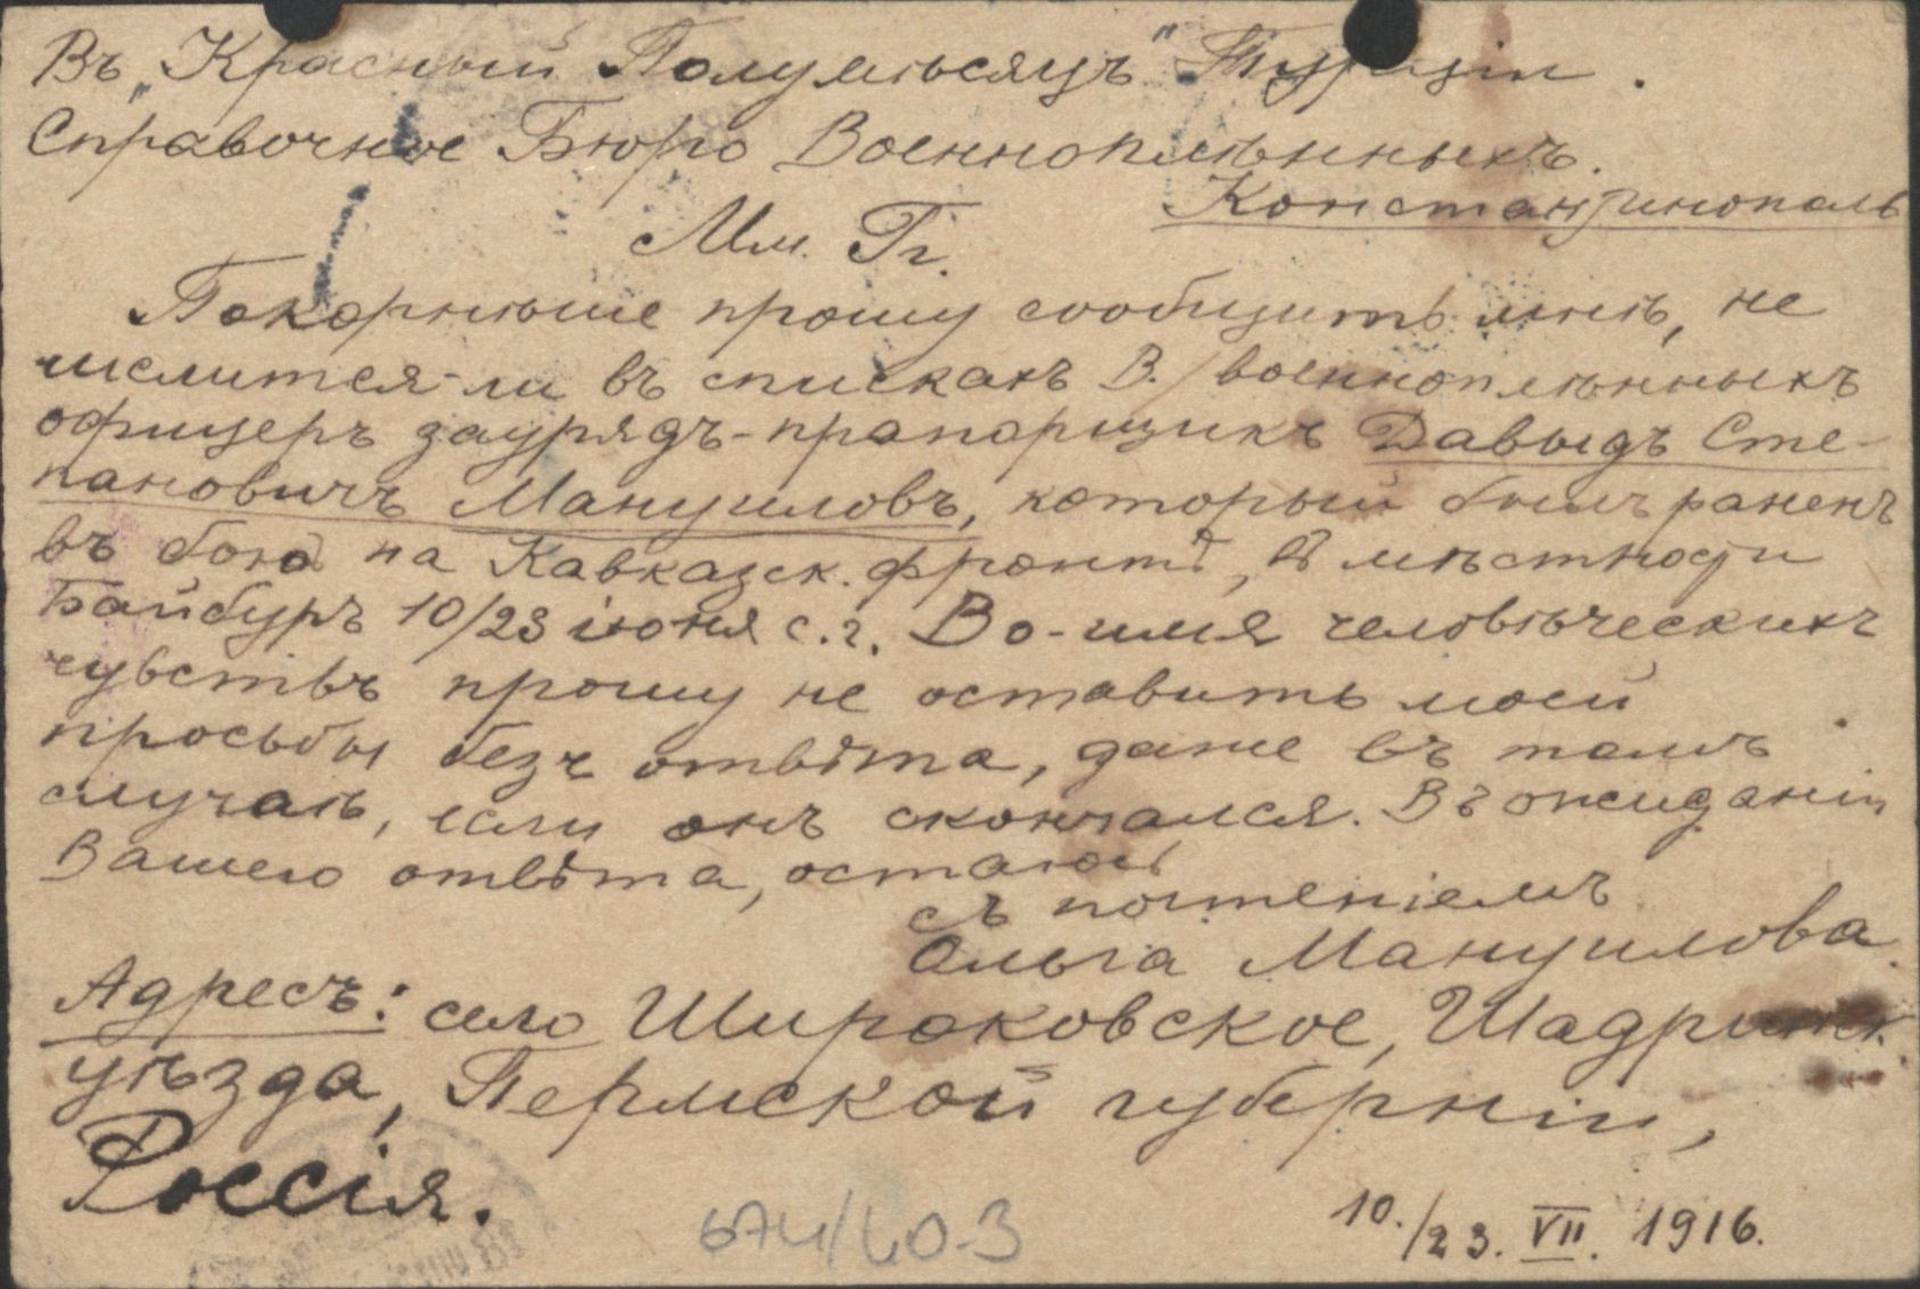 Въ „Красный Полумѣсяцъ" Турціи.
Справочное Бюро Военноплѣнныхъ.
Константинополь
Мм. Гг.
Покорнѣйше прошу сообщить мнѣ, не
числится-ли въ спискахъ В./военноплѣнныхъ
офицеръ заурядъ-прапорщикъ Давыдъ Сте-
пановичъ Мануиловъ, который былъ раненъ
въ бою на Кавказск. фронтѣ, въ мѣстности
Байбуръ 10/23 іюня с.г. Во-имя человѣческихъ
чувствъ прошу не оставить моей
просьбы безъ отвѣта, даже въ томъ
случаѣ, если онъ скончался. Въ ожиданіи
Вашего отвѣта, остаюсь
съ почтеніемъ
Ольга Мануилова.
Адресъ: село Широковское, Шадринск.
уѣзда, Пермской губерніи,
Россія.
674/60-3
10./23. VII. 1916.